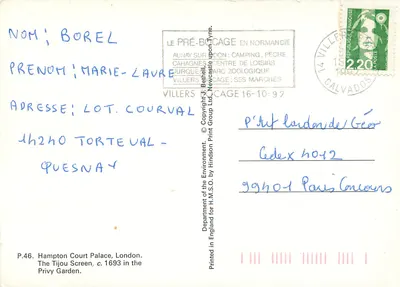 NOM: BOREL
PRENOM: MARIE-LAURE
ADRESSE: LOT. COURVAL
14240 TORTEVAL-
QUESNAY
P.46. Hampton Court Palace, London.
The Tijou Screen, c. 1693 in the
Privy Garden.
Department of the Environment. © Copyright J. Bethell.
Printed in England for H.M.S.O. by Hindson Print Group Ltd, Newcastle upon Tyne.
LE PRÉ-BOCAGE EN NORMANDIE
AUNAY SUR ODON: CAMPING, PÊCHE
CAHAGNES: CENTRE DE LOISIRS
PARC ZOOLOGIQUE
VILLERS BOCAGE: SES MARCHÉS
VILLERS BOCAGE 16-10-92
14 VILLERS
CALVADOS
2,20
P'tit lardon de Géo
Cedex 4012
99401 Paris Concours